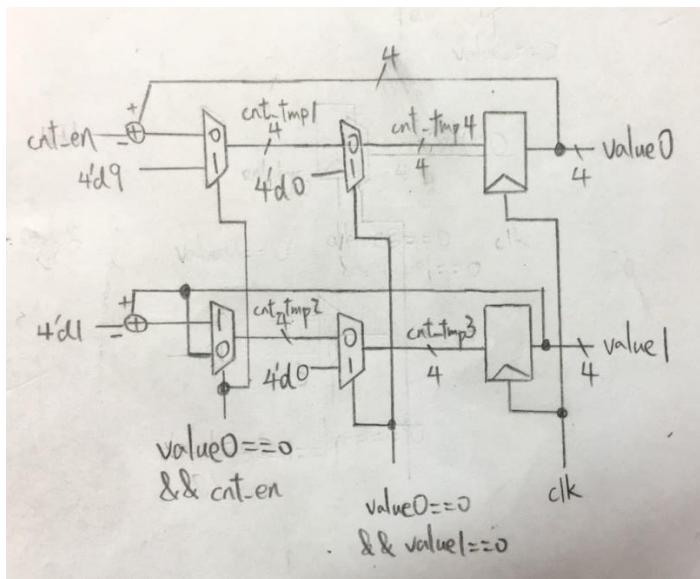 4
+
cnt_en
-
4'd9
0
1
cnt_tmp1
4
4'd0
0
1
cnt_tmp4
4
value0
4
clk
+
4'd1
-
1
0
cnt_tmp2
4
4'd0
0
1
cnt_tmp3
4
value1
4
value0==0
&& cnt_en
value0==0
&& value1==0
clk